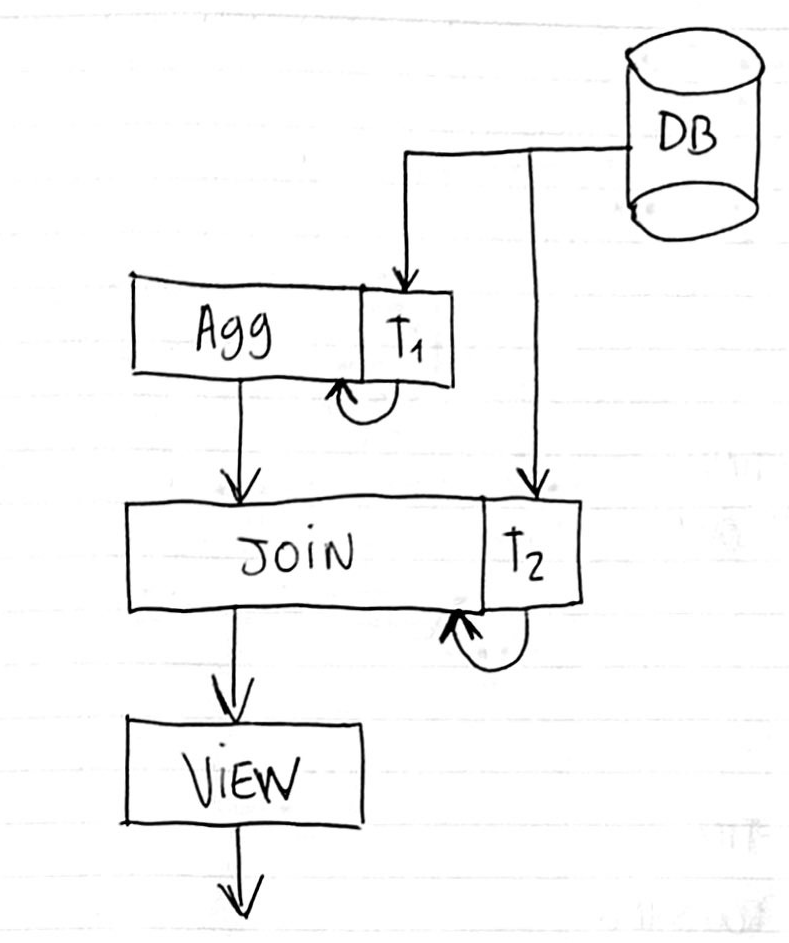 DB
Agg
T1
JOiN
T2
ViEW